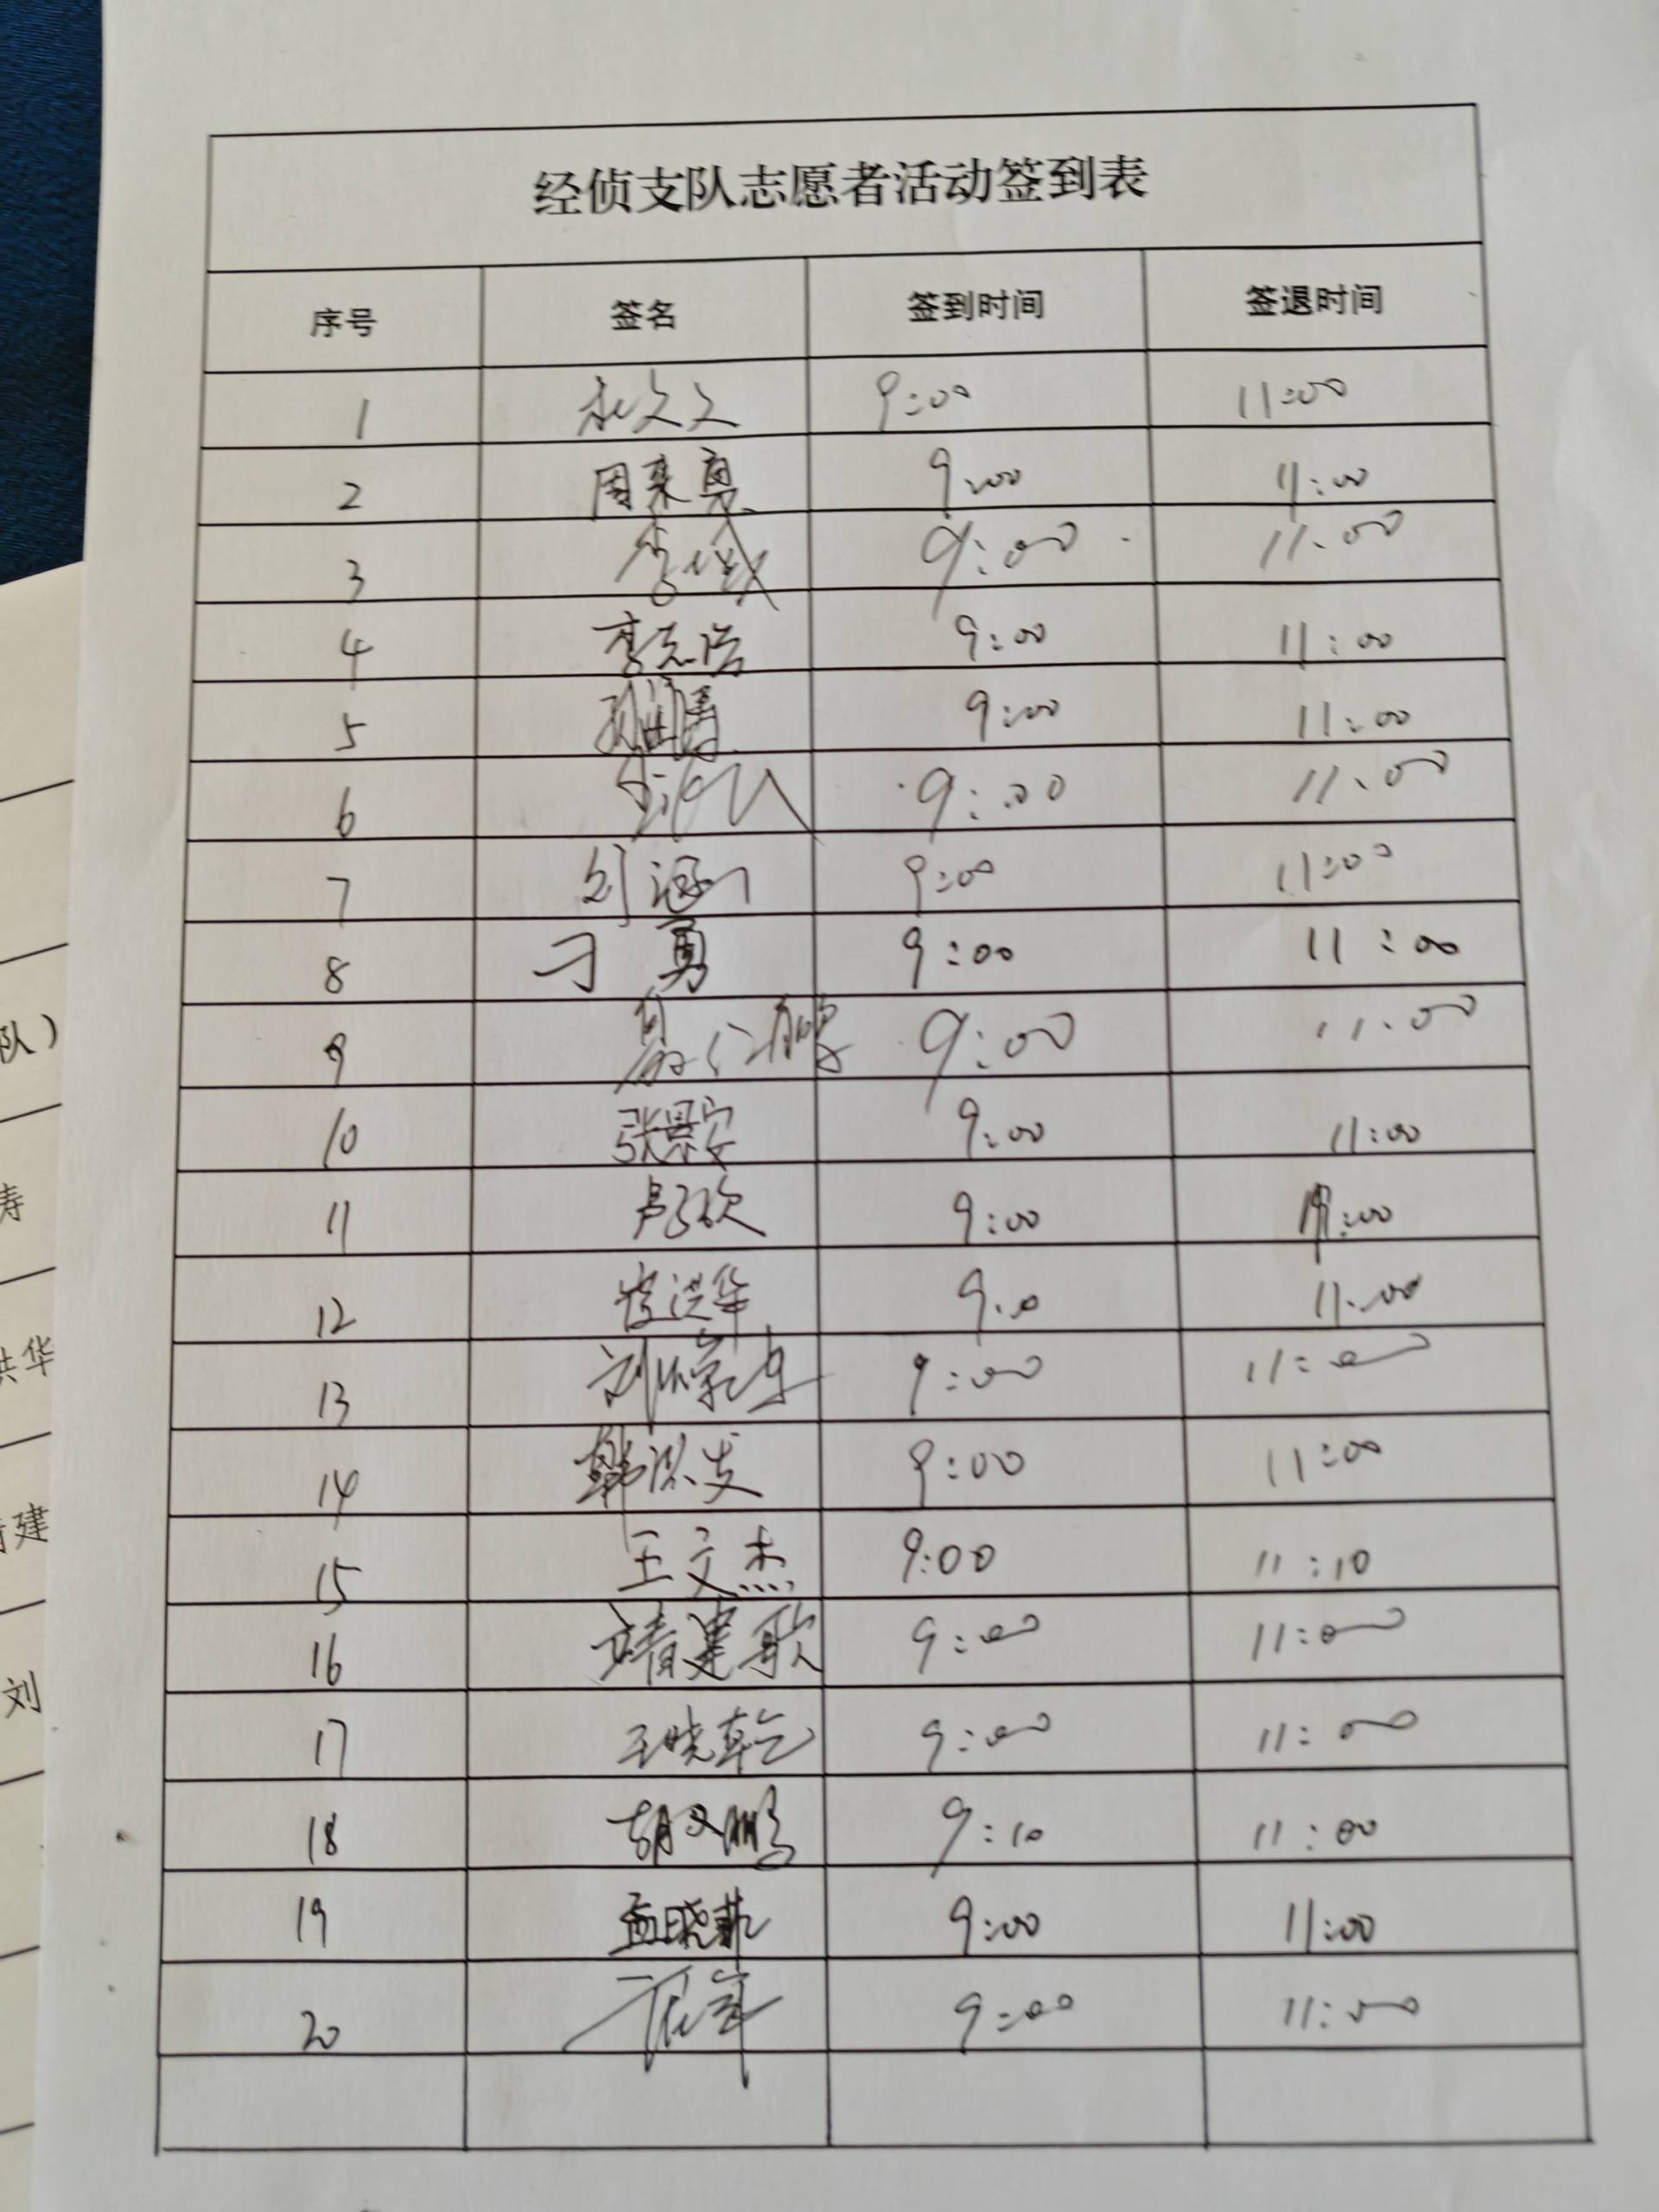 经侦支队志愿者活动签到表
序号 签名 签到时间 签退时间
1 9:00 11:00
2 周来勇 9:00 11:00
3 9:00 11:00
4 李志浩 9:00 11:00
5 9:00 11:00
6 9:00 11:00
7 刘涵 9:00 11:00
8 刁勇 9:00 11:00
9 9:00 11:00
10 张景安 9:00 11:00
11 9:00 11:00
12 洪华 9:0 11:00
13 9:00 11:00
14 韩 9:00 11:00
15 王文杰 9:00 11:10
16 靖建歌 9:00 11:00
17 王晓乾 9:00 11:00
18 胡文鹏 9:10 11:00
19 孟晓 9:00 11:00
20 9:00 11:00
队）
寿
洪华
建
刘